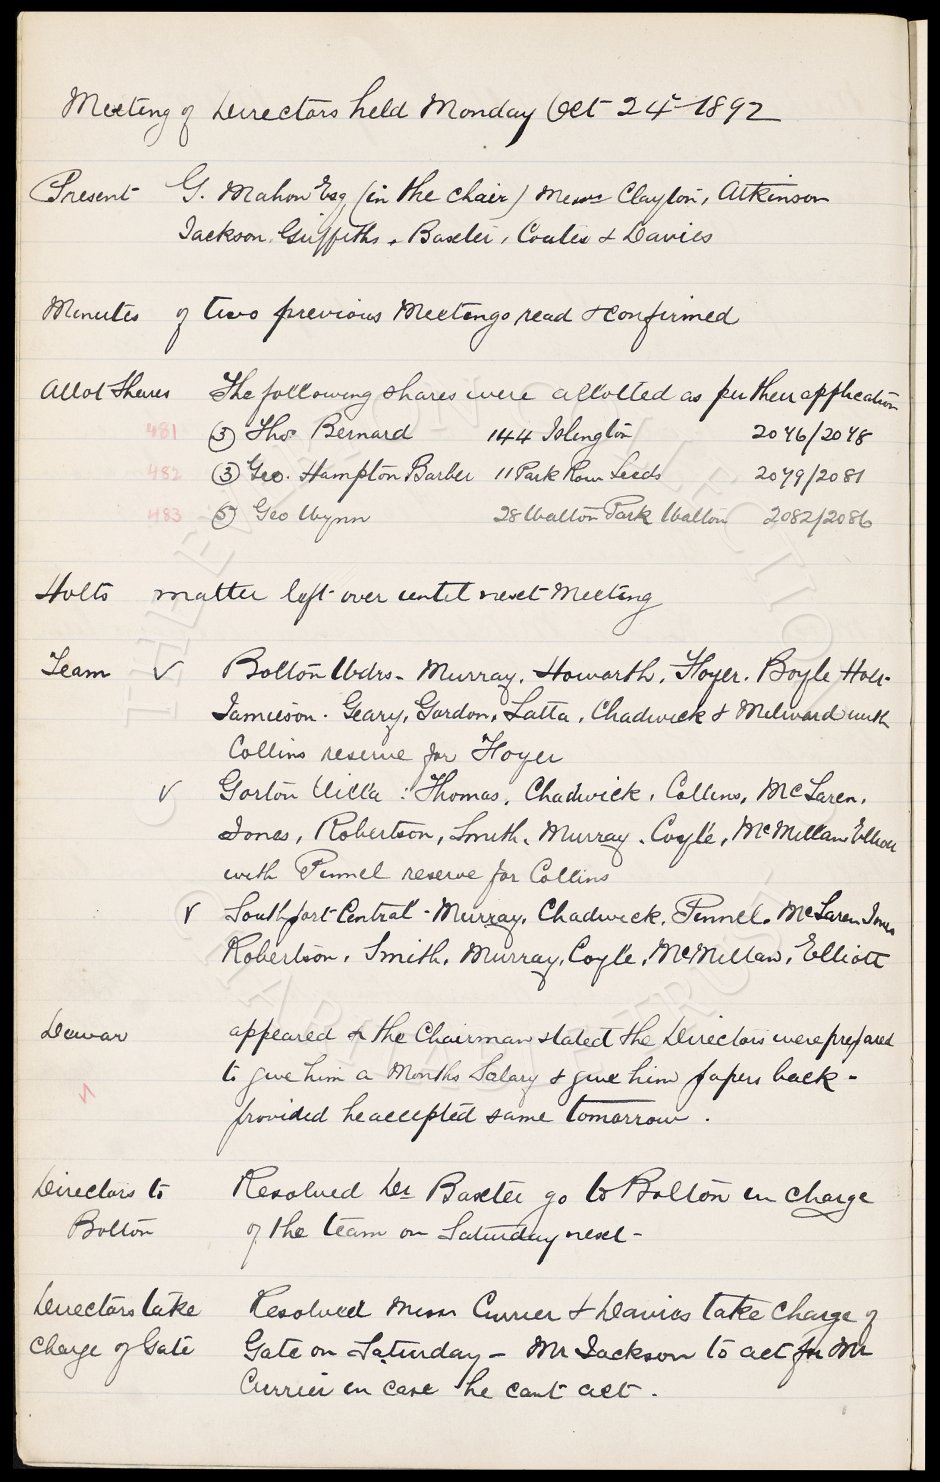 Meeting of Directors held Monday Oct 24th 1892
Present G. Mahon Esq (in the chair) Messrs Clayton, Atkinson
Jackson, Griffiths, Baxter, Coates & Davies
Minutes of two previous Meetings read & confirmed
Allot Shares The following shares were allotted as per their application
481 (3) Thos Bernard 144 Islington 2046/2048
482 (3) Geo. Hampton Barber 11 Park Row Leeds 2079/2081
483 (5) Geo Wynn 28 Walton Park Walton 2082/2086
Holts matter left over until next Meeting
Team ✓ Bolton Wdrs - Murray, Howarth, Boyle Holt
Jamieson. Geary, Gordon, Latta, Chadwick & Milward with
Collins reserve for
✓ Gorton Villa : Thomas, Chadwick, Collins, McLaren,
Jones, Robertson, Smith, Murray, Coyle, McMillan, Elliott
with Pinnel reserve for Collins
✓ Southport Central - Murray, Chadwick, Pinnel, McLaren Jones
Robertson, Smith, Murray, Coyle, McMillan, Elliott
Dewar appeared & the Chairman stated the Directors were prepared
to give him a Months Salary & give him papers back -
provided he accepted same tomorrow.
Directors to Resolved Dr Baxter go to Bolton in charge
Bolton of the team on Saturday next -
Directors take Resolved Messrs Currier & Davies take charge of
charge of Gate Gate on Saturday - Mr Jackson to act for Mr
Currier in case he cant act.
THE EVERTON COLLECTION
CHARITABLE TRUST